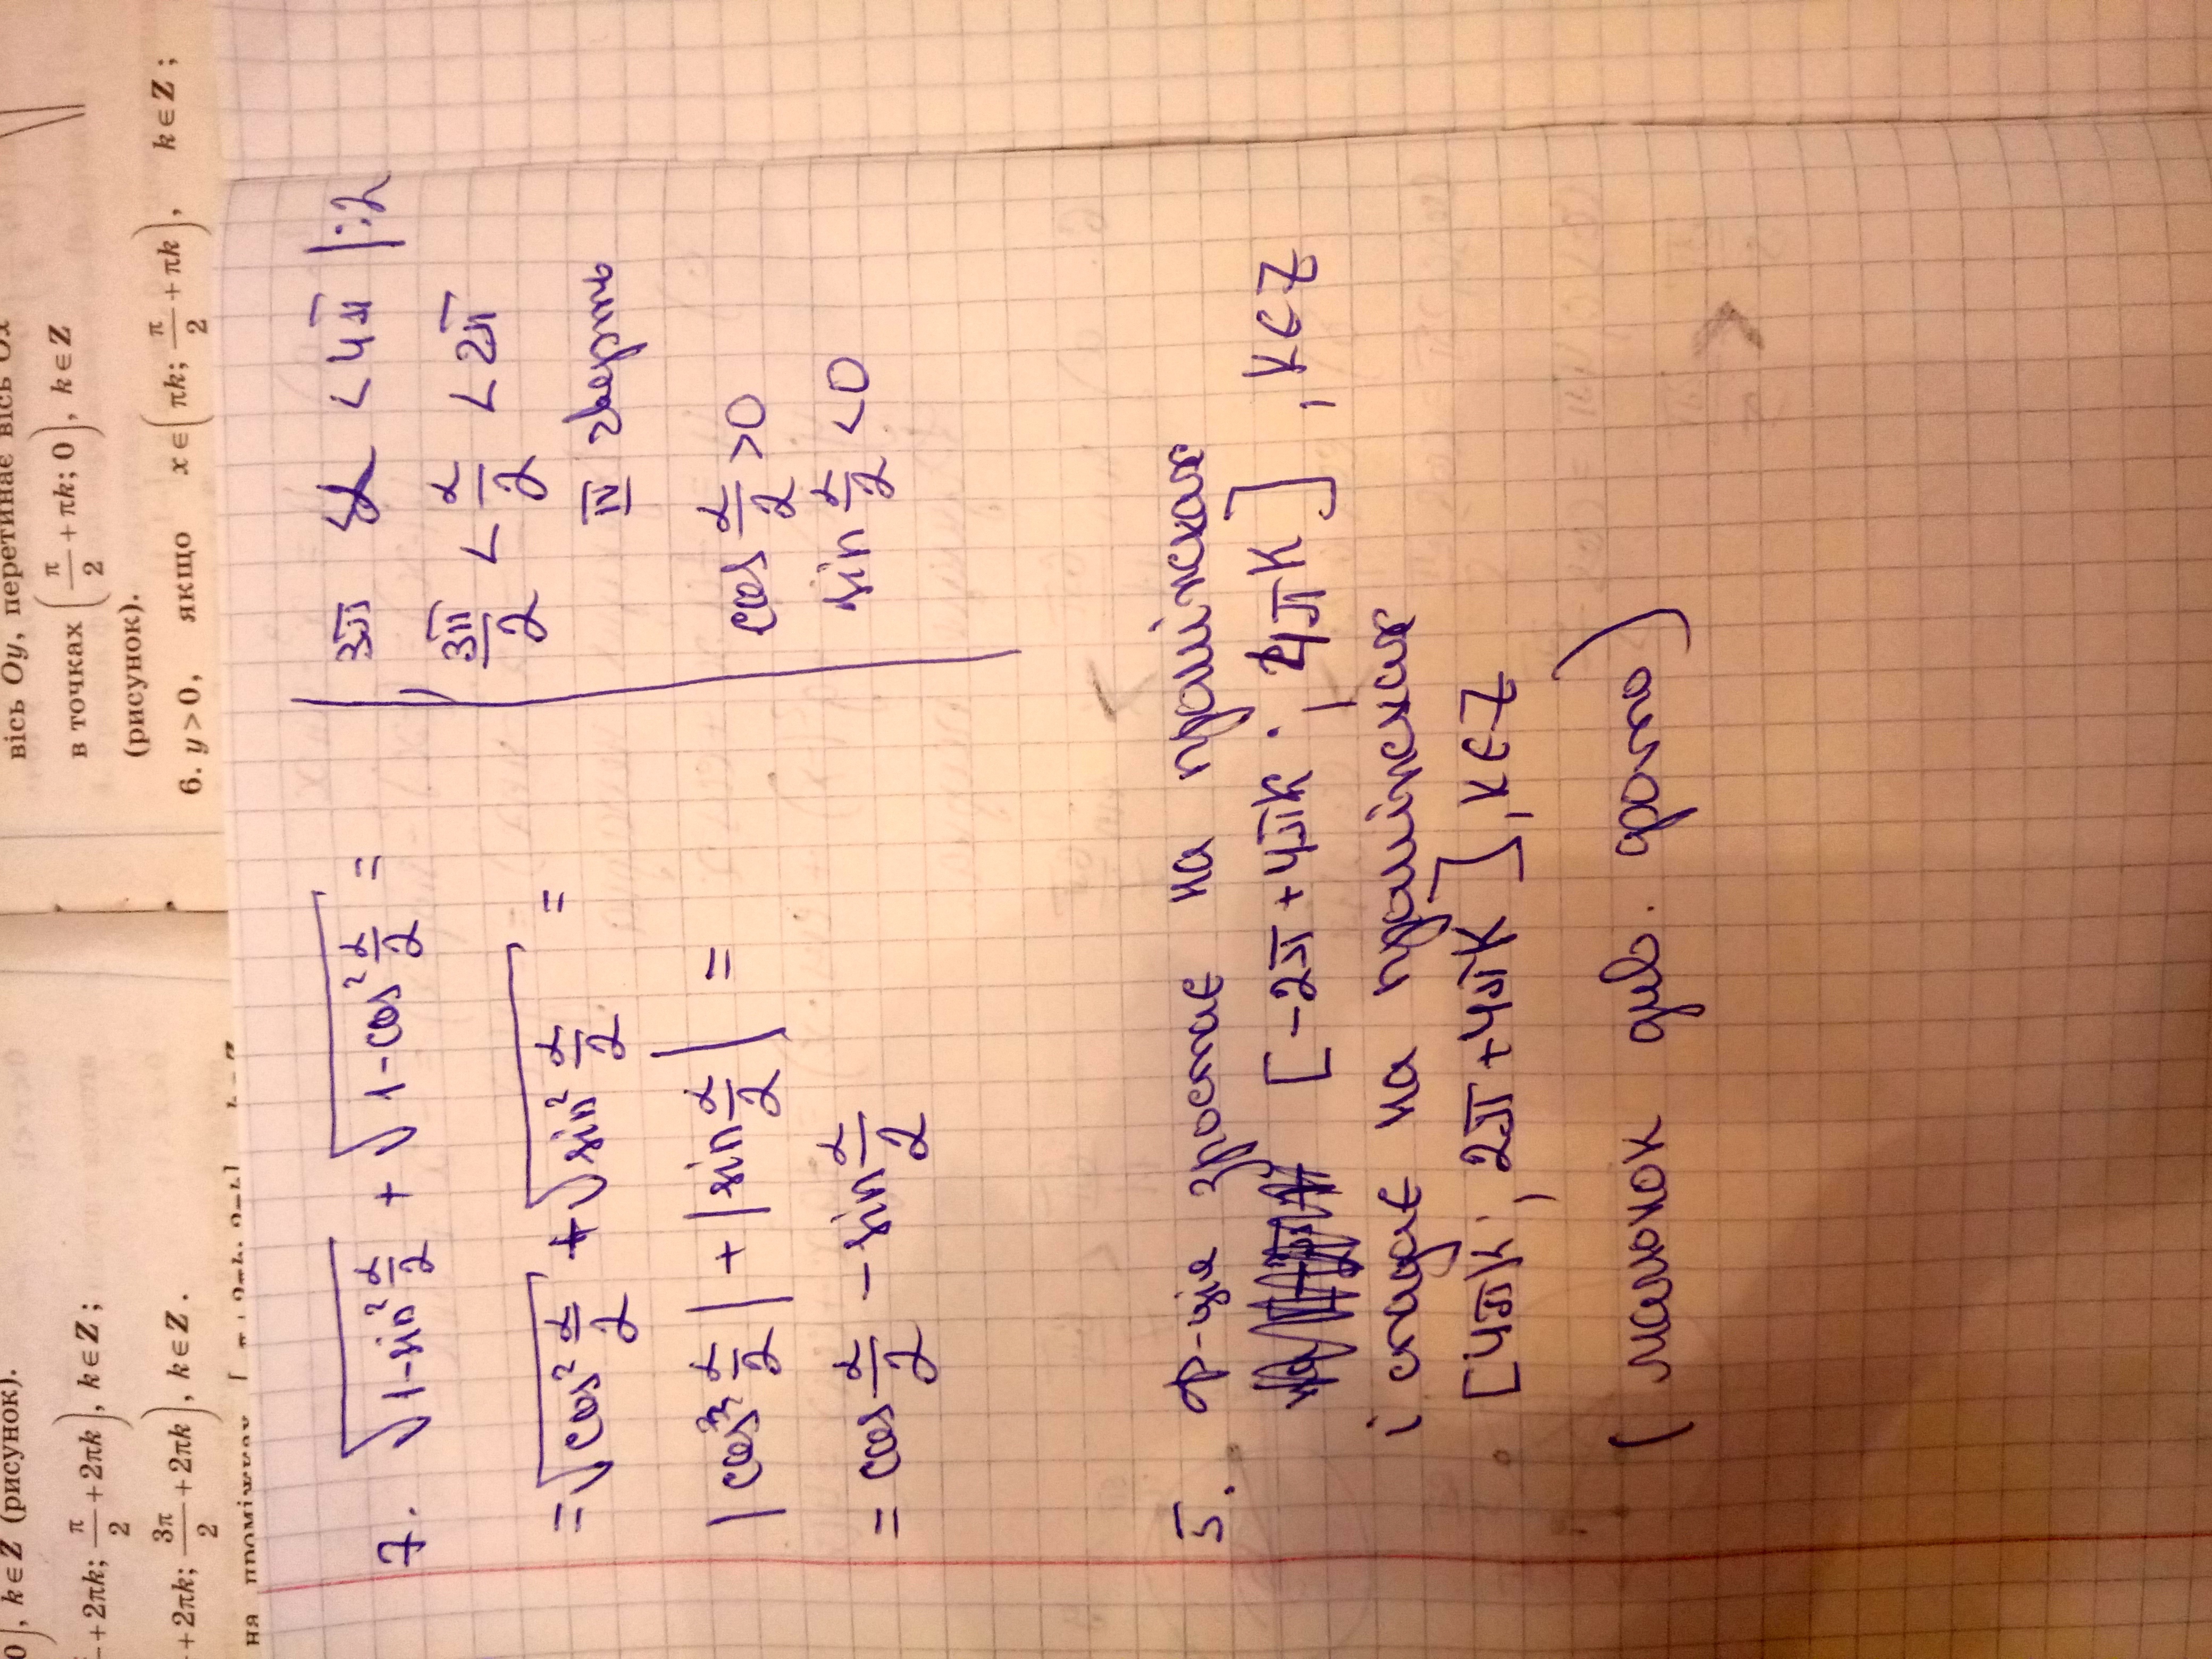 0), k ∈ Z (рисунок).
+ 2πk; π/2 + 2πk), k ∈ Z;
+ 2πk; 3π/2 + 2πk), k ∈ Z.
вісь Oy, перетинає вісь Ox
в точках (π/2 + πk; 0), k ∈ Z
(рисунок).
6. y > 0, якщо x ∈ (πk; π/2 + πk), k ∈ Z;
7. √(1-sin² α/2) + √(1-cos² α/2) =
= √(cos² α/2) + √(sin² α/2) =
|cos α/2| + |sin α/2| =
= cos α/2 - sin α/2
3π < α < 4π |:2
3π/2 < α/2 < 2π
IV чверть
cos α/2 > 0
sin α/2 < 0
5. ф-ція зростає на проміжках
[-2π + 4πk; 4πk], k ∈ Z
і спадає на проміжках
[4πk; 2π + 4πk], k ∈ Z
(малюнок див. фото)